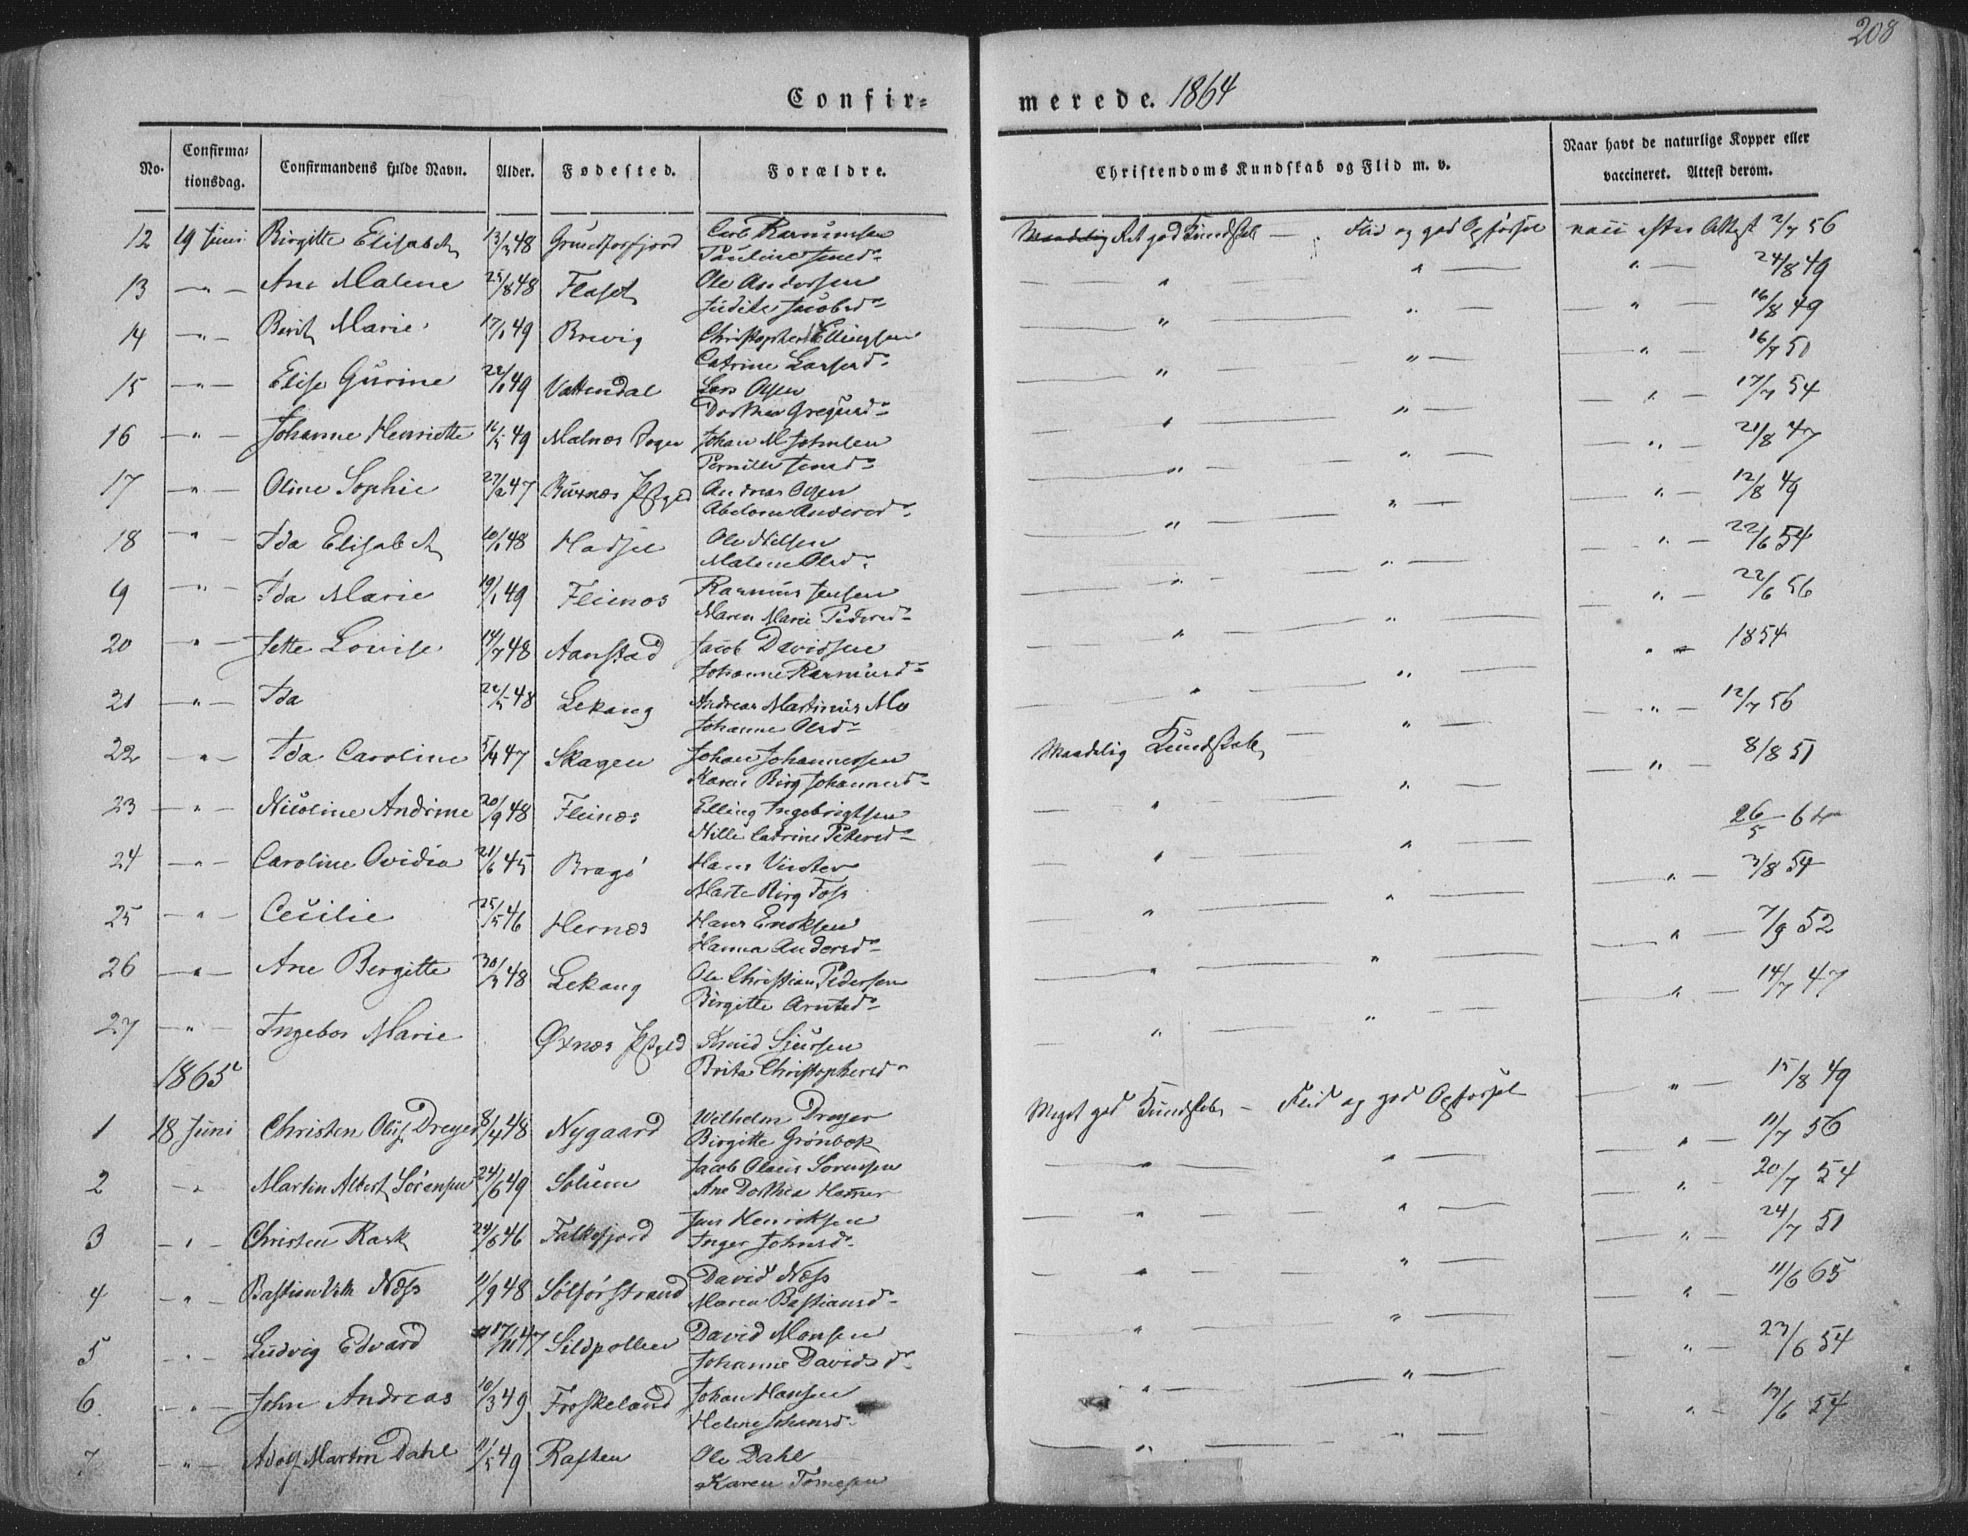 208
Confir-
merede. 1864
No.
Confirma-
tionsdag.
Confirmandens fulde Navn.
Alder.
Fødested.
Forældre.
Christendoms Kundskab og Flid m. v.
Naar havt de naturlige Kopper eller
vaccineret. Attest derom.
12 19 Juni Birgitte Elisabeth 13/3 48 Carl Rasmussen god Kundskab — Flid og god Opførsel vacc efter Attest 2/7 56
13 — " — Ane Malene 25/8 48 Ole Andersen — " — " — " — 24/8 49
Judite Jacobsd
14 — " — Berit Marie 49 Brevig Christopher Ellingsen — " — " — " — 16/8 49
Catrine Larsend
15 — " — Elise Gurine 49 Vattendal Lars Olsen — " — " — " — 16/7 51
Gregusd
16 — " — Johanne Henriette 49 Malnes Sogn Johan M Johnsen — " — " — " — 17/7 54
Pernille Jensd
17 — " — Oline Sophie 47 Andreas Olsen — " — " — " — 21/8 47
Andersd
18 — " — Ida Elisabeth 48 Hadsel Ole Nilsen — " — " — " — 12/8 49
Malene Olsd
19 — " — Ida Marie 19/1 49 Fleinæs Rasmus Jensen — " — " — " — 22/6 54
Maren Marie Pedersd
20 — " — Jette Lovise 14/7 48 Aanstad Jacob Davidsen — " — " — " — 22/6 56
Johanne Rasmusd
21 — " — Ida 48 Lekang Andreas Martinus Mo — " — " — " — 1854
Johanne Olsd
22 — " — Ida Caroline 5/4 47 Skagen Johan Johannessen Maadelig Kundskab — " — " — 12/7 56
Karen Birg Johannesd
23 — " — Nicoline Andrine 20/9 48 Fleinæs Elling Ingebrigtsen — " — " — " — 8/8 51
Nille Catrine Petersd
24 — " — Caroline Ovidia 21/6 45 Bragø Hans Vinter — " — " — 26/5 64
Marte Birg Foss
25 — " — Cecilie 25/5 46 Hernes Hans Eriksen — " — " — " — 3/8 54
Hanna Andersd
26 — " — Ane Bergitte 48 Lekang Ole Christian Pedersen — " — " — " — 7/9 52
Birgitte Arntsd
27 — " — Ingebor Marie Øxnæs Knud Sjursen — " — " — " — 14/7 47
Brita Christophersd
1865
1 18 Juni Christen Oluf Dreyer 8/4 48 Nygaard Wilhelm Dreyer Meget god Kundskab — Flid og god Opførsel — " — 15/8 49
Birgitte Grønbek
2 — " — Martin Albert Sørensen 24/6 49 Solum Jacob Olaus Sørensen — " — " — " — 11/7 56
Ane Dorthea Hammer
3 — " — Christen Rask 24/6 46 Falkfjord Jens Henriksen — " — " — " — 20/7 54
Inger Johnsd
4 — " — Bastian Næss 11/9 48 David Næss — " — " — " — 24/7 51
Maren Bastiansd
5 — " — Ludvig Edvard 17/11 47 Sildpollen David Monsen — " — " — " — 11/6 65
Johanne Davidsd
6 — " — John Andreas 10/3 49 Froskeland Johan Hansen — " — " — " — 23/6 54
Helene Johansd
7 — " — Adolf Martin Dahl 11/5 49 Raften Ole Dahl — " — " — 54
Karen Tomesen